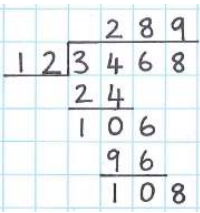 289
12 3468
24
106
96
108